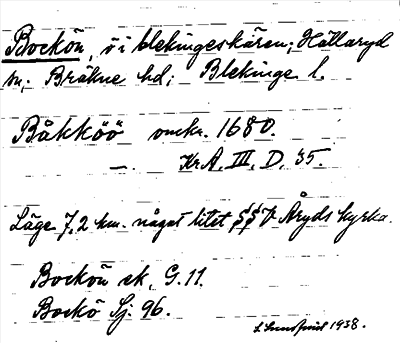 Bockön, ö i blekingeskären; Hällaryd
sn; Bräkne hd; Blekinge l.
Båkköö omkr. 1680.
—. Kr.A. III, D, 35.
Läge 7,2 km. något litet Åryds kyrka.
Bockön ek, G.11.
Bockö Sj. 96.
1938.